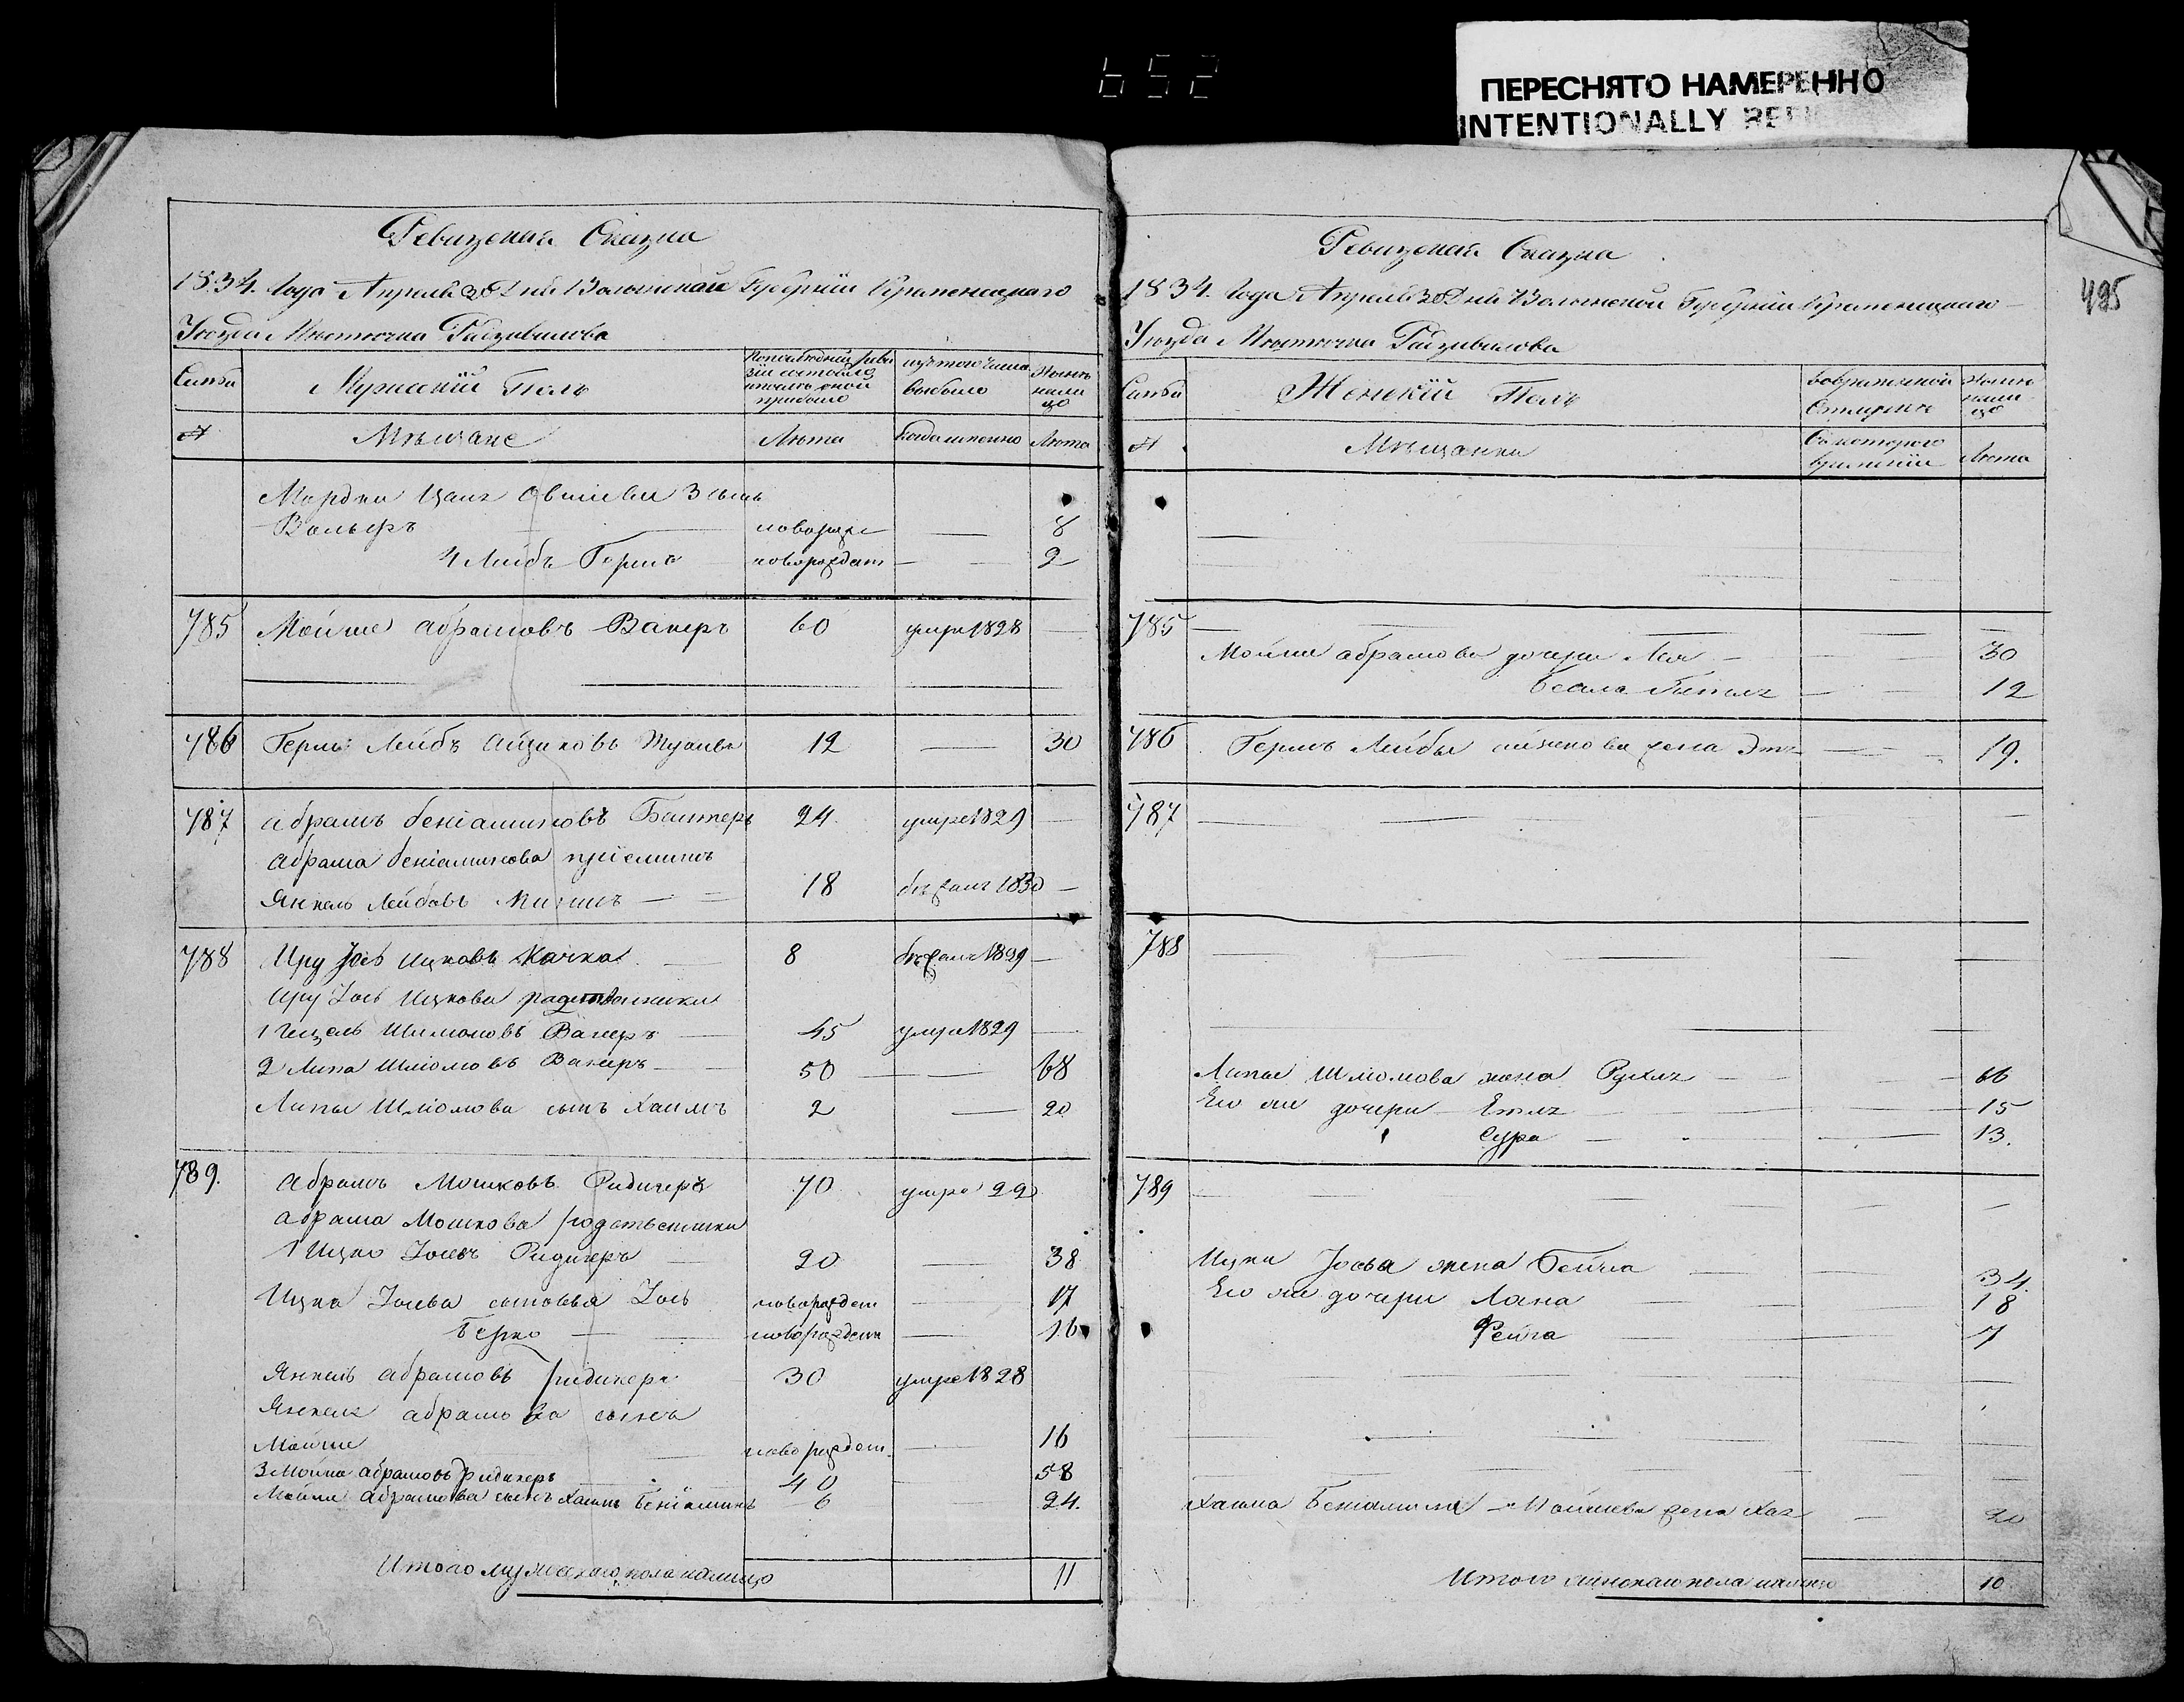 652
ПЕРЕСНЯТО НАМЕРЕННО
INTENTIONALLY
495
Ревизская Сказка
1834. Года Апреля 30 Дня Волынской Губернїи Кременецкаго
Уѣзда Мѣстечка Радзивилова
Семьи
Мужескїй Полъ
По последней ревизїи состояло и после оной прибыло
изъ того числа выбыло
Нынѣ на лицо
№
Мѣщане
Лѣта
Когда именно
Лѣта
Мордка Овшіевы 3 сынъ
Вольфъ новорожде — 8
4 Лейбъ Гершъ новорожден — 2
785 Мойше Абрамовъ Вакеръ 60 умре 1828 —
786 Гершъ Лейбъ Ицковъ 12 — 30
787 Абрамъ Беніаминовъ 24 умре 1829 —
Абрама Беніаминова прїемишъ
Янкель Лейбовъ 18 бѣжалъ 1830 —
788 Иось Ицковъ Качка 8 бѣжалъ 1829 —
Иось Ицкова родственники
1 Шлиомовъ Вакеръ 45 умре 1829 —
2 Липа Шліомовъ Вакеръ 50 — 68
Липы Шліомова сынъ Хаимъ 2 — 20
789. Абрамъ Мошковъ Ридигеръ 70 умре 22
Абрама Мошкова родственники
1 Ицко Іосевъ Ридигеръ 20 — 38
Ицка Іосева сыновья Іось новорожден — 17
Берко — новорожден — 16
Янкель Абрамовъ Ридигеръ 30 умре 1828
Янкеля Абрамова сынъ
Мойше новорожден — 16
3 Мойша Абрамовъ Ридигеръ 40 58
Мойши Абрамова сынъ Хаимъ Беніаминъ 6 — 24.
Итого мужескаго пола налицо 11
Ревизская Сказка
1834. Года Апреля 30 Дня Волынской Губернїи Кременецкаго
Уѣзда Мѣстечка Радзивилова
Семьи
Женскїй Полъ
Во временной отлучкѣ
Нынѣ на лицо
№
Мѣщанки
Съ которого времени
Лѣта
785
Мойши Абрамова дочери Лея — 30
Бейла 12
786 Гершъ Лейбы Ицкова жена 19.
787
788
Липы Шліомова жена Рухля — 66
Его же дочери Етля 15
Сура — 13.
789
Ицка Іосева жена Бейла — 34.
Его же дочери Хана 18
Фейга 7
Хаима Беніамина Мойшева жена Хая — 20
Итого женскаго пола налицо 10